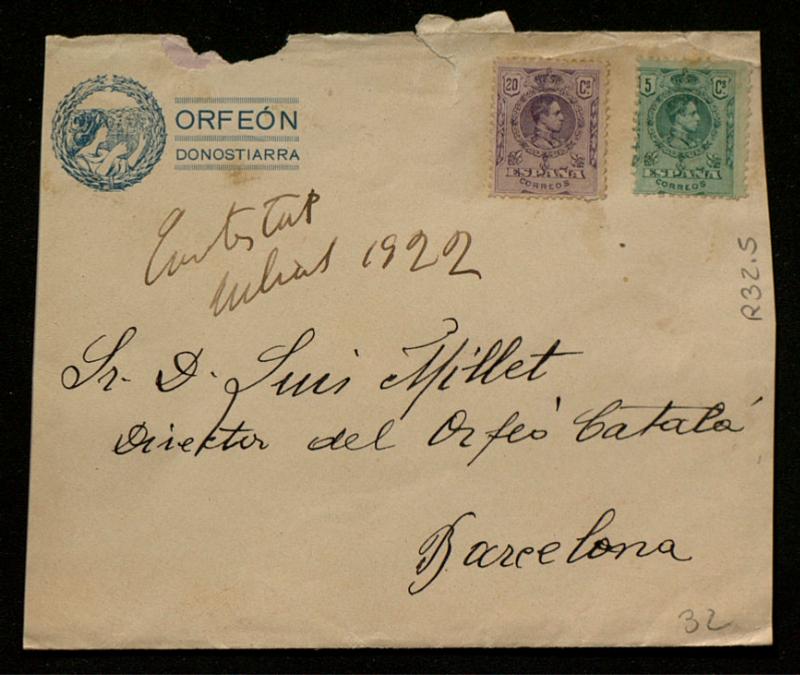 ORFEÓN
DONOSTIARRA
20 Cs
ESPAÑA
CORREOS
5 Cs
ESPAÑA
CORREOS
Contestat
juliol 1922
R32.5
Sr. D. Luis Millet
Director del Orfeó Català
Barcelona
32